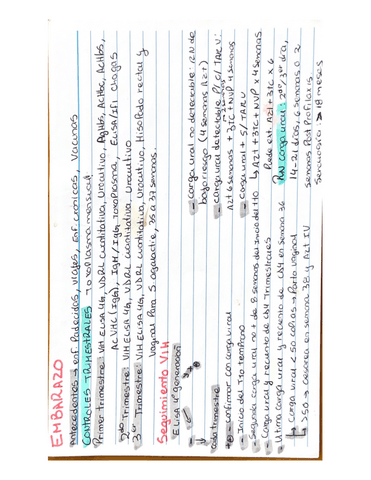 EMBARAZO
Antecedentes → enf Padecidas, viajes, enf cronicas, Vacunas
CONTROLES TRIMESTRALES Toxoplasma mensual
Primer trimestre: VIH Elisa 4G, VDRL Cuantitativa, Urocultivo, AgHbs, AcHbc, AcHbs,
AcVHC (IgG), IgM/IgG Toxoplasma, Elisa/IFI Chagas
2do Trimestre: VIH ELISA 4G, VDRL cuantitativa, Urocultivo
3er Trimestre: VIH Elisa 4G, VDRL cuantitativa, Urocultivo, Hisopado rectal y
vaginal Para S. agalactie, 35 a 37 semanas.
Seguimiento VIH
ELISA 4° generación
cada trimestre
- Confirmar con carga viral
- Inicio del Tto temprano
- Segunda carga viral no + de 8 semanas del inicio del Tto
- Carga viral y recuento de CD4 trimestrales
* Ultima carga viral y recuento de CD4 en semana 36
↳ Carga viral < 50 copias → Parto vaginal
≥ 50 → cesarea en semana 38 y AZT IV
- carga viral no detectable: RN de
bajo riesgo (4 semanas AZT)
- carga viral detectable c/ TARV:
AZT 6 semanas + 3TC + NVP 4 semanas
- carga viral + s/ TARV
↳ AZT + 3TC + NVP x 4 semanas
Puede ext. AZT + 3TC x 6
RN carga viral: 2do/3er día,
14-21 dias, 6 semanas o 2
semanas Post Profilaxis
Serologia > 18 meses